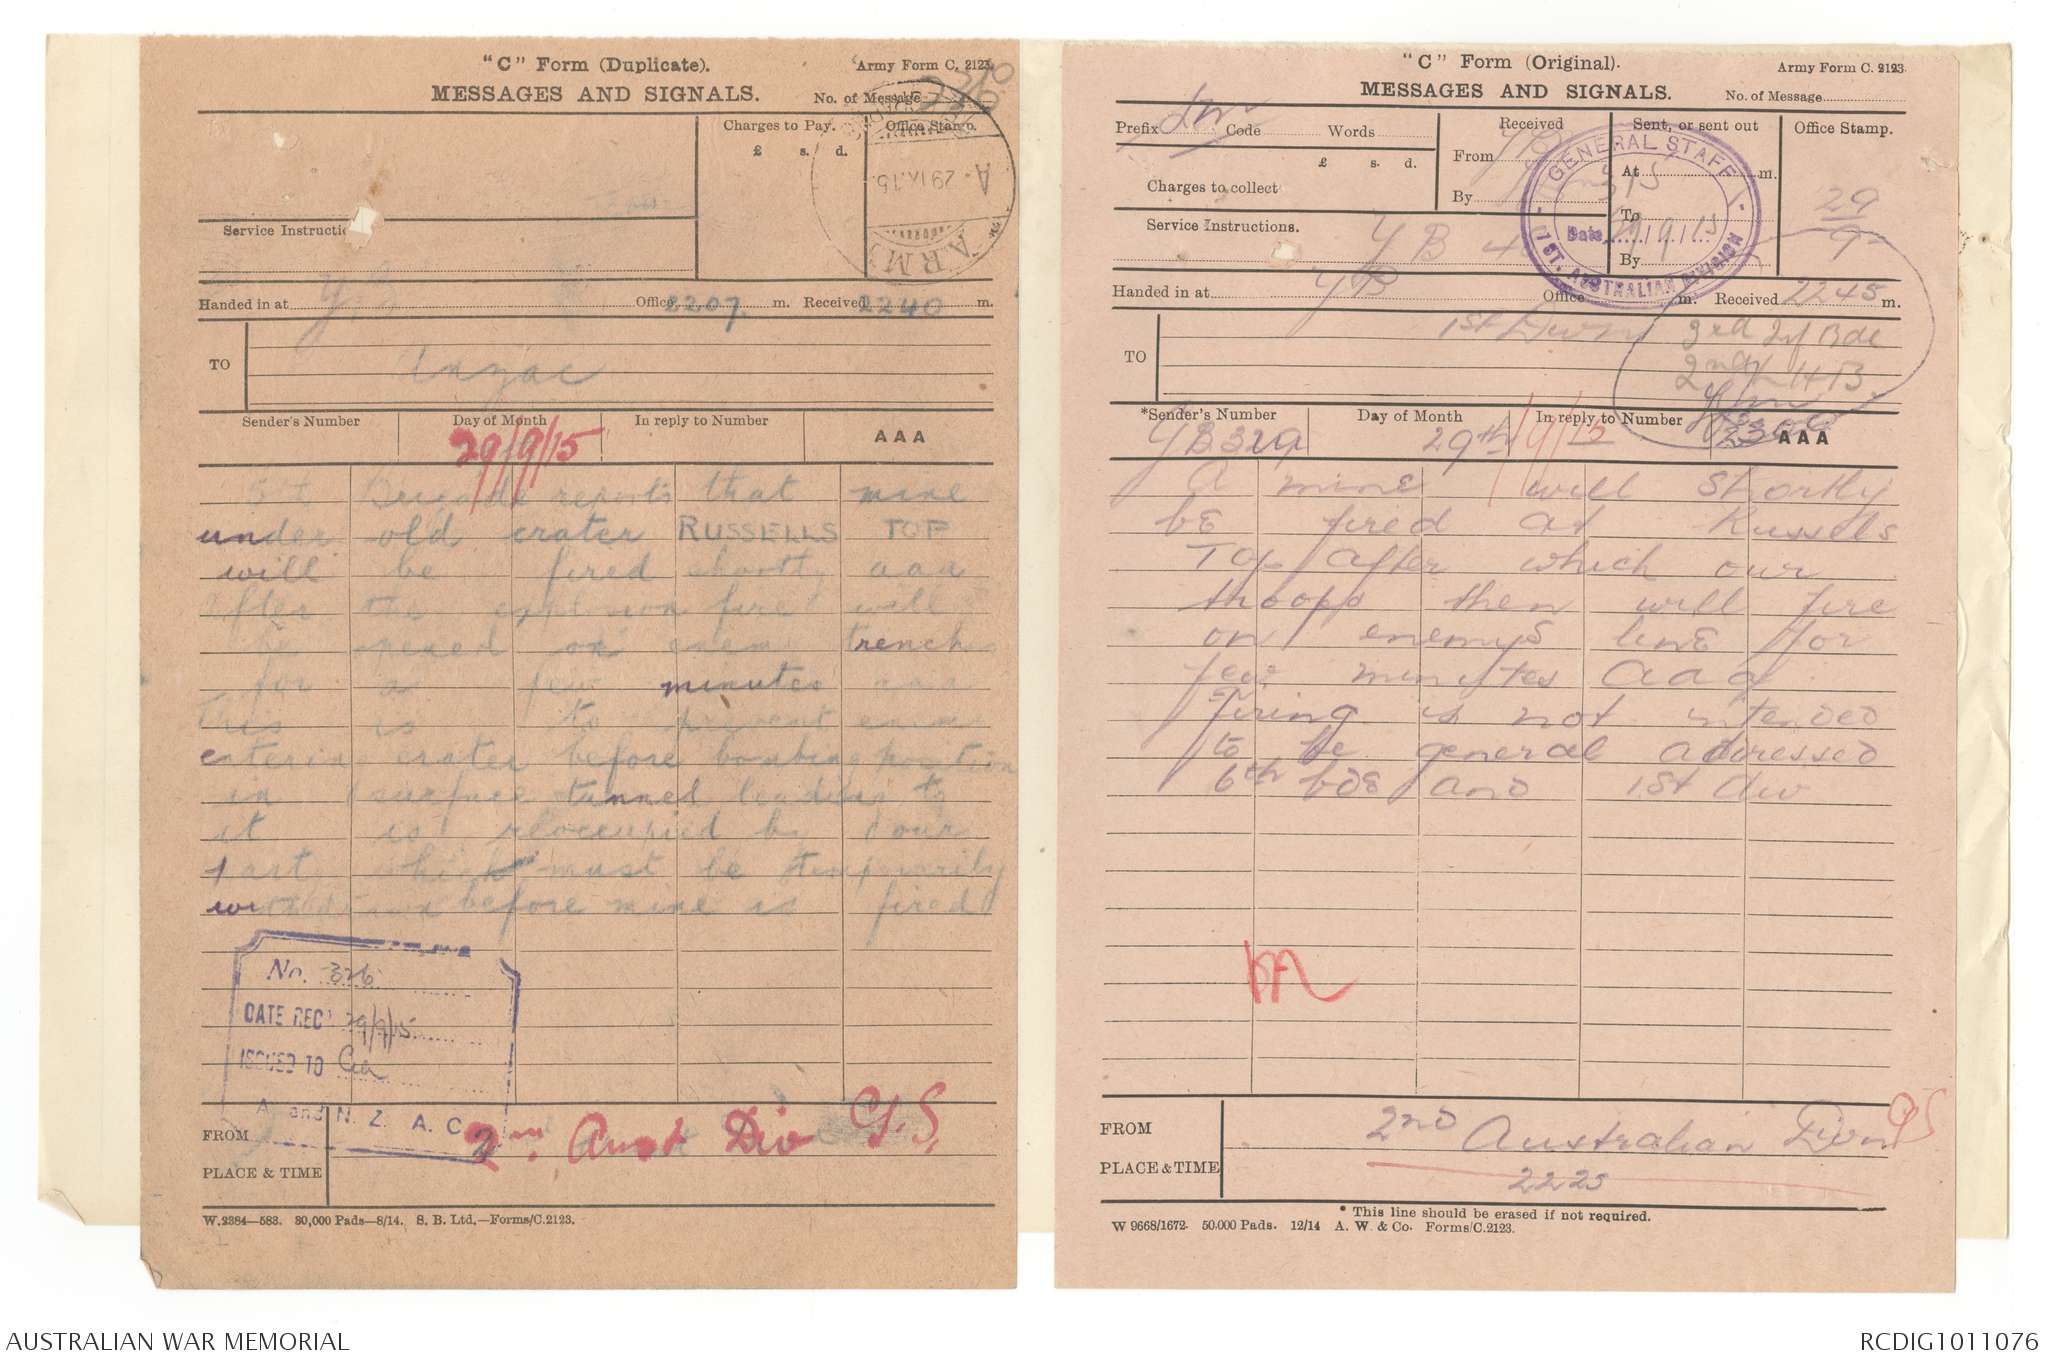 "C" Form (Duplicate).
Army Form C. 2123.
MESSAGES AND SIGNALS.
No. of Message
Charges to Pay.
£ s. d.
Office Stamp.
A. 29 IX. 15.
ARMY
Service Instructions
Handed in at Y.B. Office 2207. m. Received 2240 m.
TO
Anzac
Sender's Number
Day of Month
In reply to Number
AAA
29/9/15
5th Brigade reports that mine
under old crater RUSSELLS TOP
will be fired shortly aaa
After the explosion fire will
be opened on enemy trenches
for a few minutes aaa
This is to prevent enemy
entering crater before bombing position
in surface tunnel leading to
it is reoccupied by our
party which must be temporarily
withdrawn before mine is fired
No. 326
DATE REC' 29/9/15
ISSUED TO
A. and N. Z. A. C.
FROM
PLACE & TIME
2nd Aust Div G.S.
W.2384—583. 30,000 Pads—8/14. S. B. Ltd.—Forms/C.2123.
"C" Form (Original).
Army Form C. 2123
MESSAGES AND SIGNALS.
No. of Message
Prefix Code Words
£ s. d.
Charges to collect
Received
From
By
Sent, or sent out
At m.
To
By
Office Stamp.
29
9
GENERAL STAFF
Date 29/9/15
1 ST. AUSTRALIAN DIVISION
Service Instructions.
YB
Handed in at YB Office m. Received 2245 m.
TO
1st Divn
3rd Inf Bde
2nd LHB
*Sender's Number
Day of Month
In reply to Number
AAA
YB329 29th/9/15
A mine will shortly
be fired at Russels
Top after which our
troops then will fire
on enemys line for
few minutes aaa
Firing is not intended
to be general addressed
6th bde and 1st div
FROM
PLACE & TIME
2nd Australian Divn GS
2225
* This line should be erased if not required.
W 9668/1672. 50,000 Pads. 12/14 A. W. & Co. Forms/C.2123.
AUSTRALIAN WAR MEMORIAL
RCDIG1011076